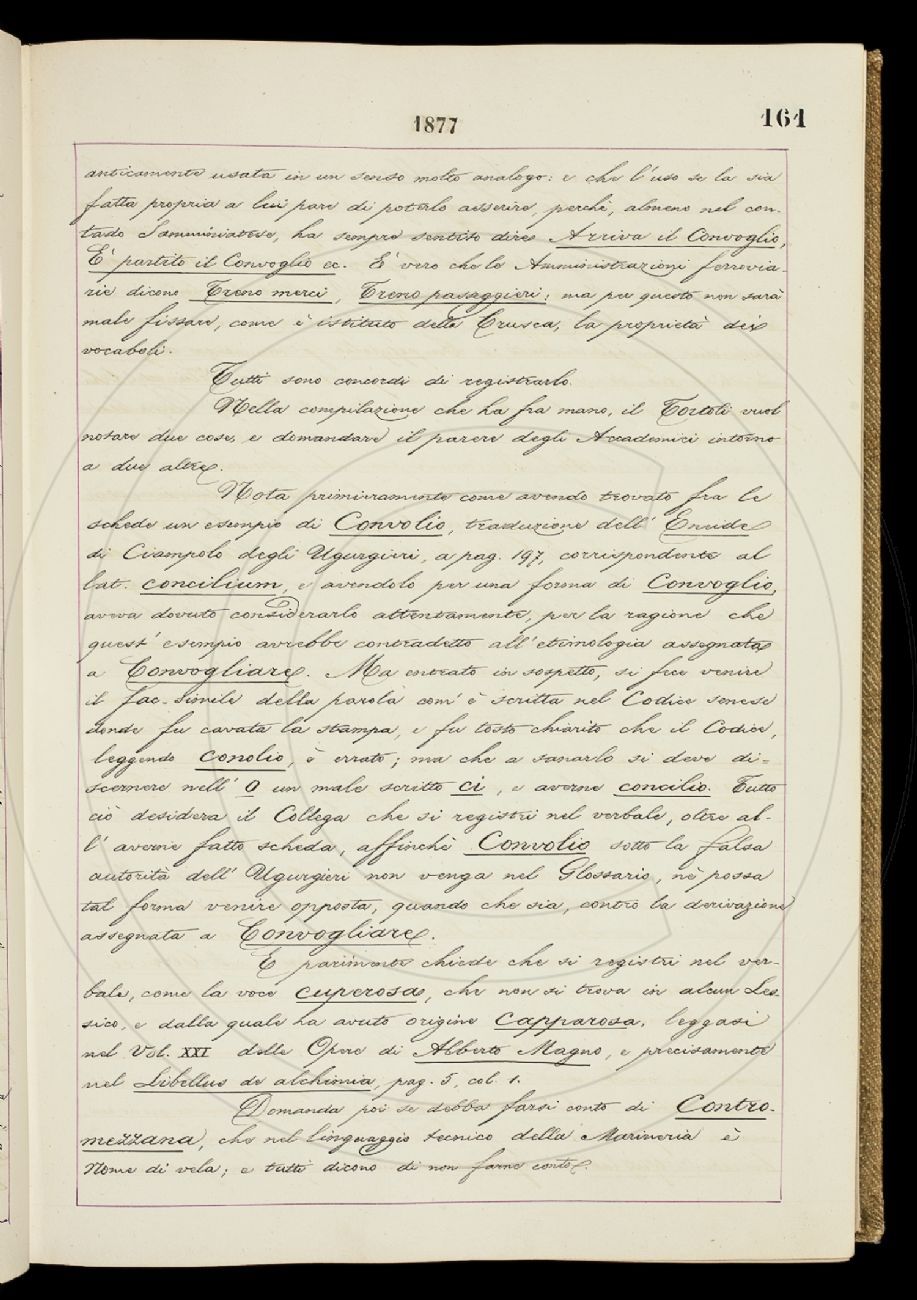 1877
161
anticamente usata in un senso molto analogo: e che l'uso se la sia
fatta propria a lui pare di poterlo asserire, perchè, almeno nel con-
tado Samminiatese, ha sempre sentito dire Arriva il Convoglio,
È partito il Convoglio ec. È vero che le Amministrazioni ferrovia-
rie dicono Treno merci, Treno passeggieri; ma per questo non sarà
male fissare, come è istituto della Crusca, la proprietà dei
vocaboli.
Tutti sono concordi di registrarlo.
Nella compilazione che ha fra mano, il Tortoli vuol
notare due cose, e domandare il parere degli Accademici intorno
a due altre.
Nota primieramente come avendo trovato fra le
schede un esempio di Convolio, traduzione dell' Eneide
di Ciampolo degli Ugurgieri, a pag. 197, corrispondente al
lat. concilium, e avendolo per una forma di Convoglio,
aveva dovuto considerarlo attentamente, per la ragione che
quest' esempio avrebbe contradetto all' etimologia assegnata
a Convogliare. Ma entrato in sospetto, si fece venire
il fac-simile della parola com' è scritta nel Codice senese
donde fu cavata la stampa, e fu tosto chiarito che il Codice,
leggendo conolio, è errato; ma che a sanarlo si deve di-
scernere nell' o un male scritto ci, e averne concilio. Tutto
ciò desidera il Collega che si registri nel verbale, oltre al-
l' averne fatto scheda, affinchè Convolio sotto la falsa
autorità dell' Ugurgieri non venga nel Glossario, nè possa
tal forma venire opposta, quando che sia, contro la derivazione
assegnata a Convogliare.
E parimente chiede che si registri nel ver-
bale, come la voce cuperosa, che non si trova in alcun Les-
sico, e dalla quale ha avuto origine Capparosa, leggasi
nel Vol. XXI delle Opere di Alberto Magno, e precisamente
nel Libellus de alchimia, pag. 5, col. 1.
Domanda poi se debba farsi conto di Contro-
mezzana, che nel linguaggio tecnico della Marineria è
Nome di vela; e tutti dicono di non farne conto.